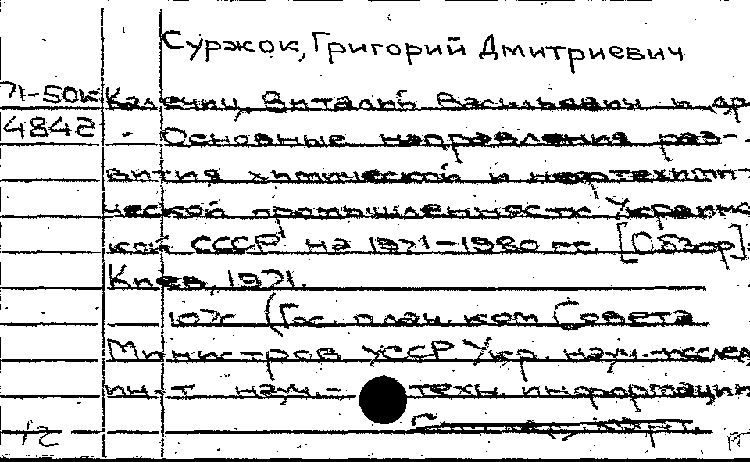 Суржок, Григорий Дмитриевич
71-50К Калечиц, Виталий Васильевич и др
4842 . Основные направления раз-
вития химической и нефтехими-
ческой промышленности Украинс
кой СССР на 1971-1980 гг. [Обзор]
Киев, 1971.
107с (Гос. план. ком Совета
Министров УССР Укр. науч.-исслед
ин-т науч.- техн. информации
12